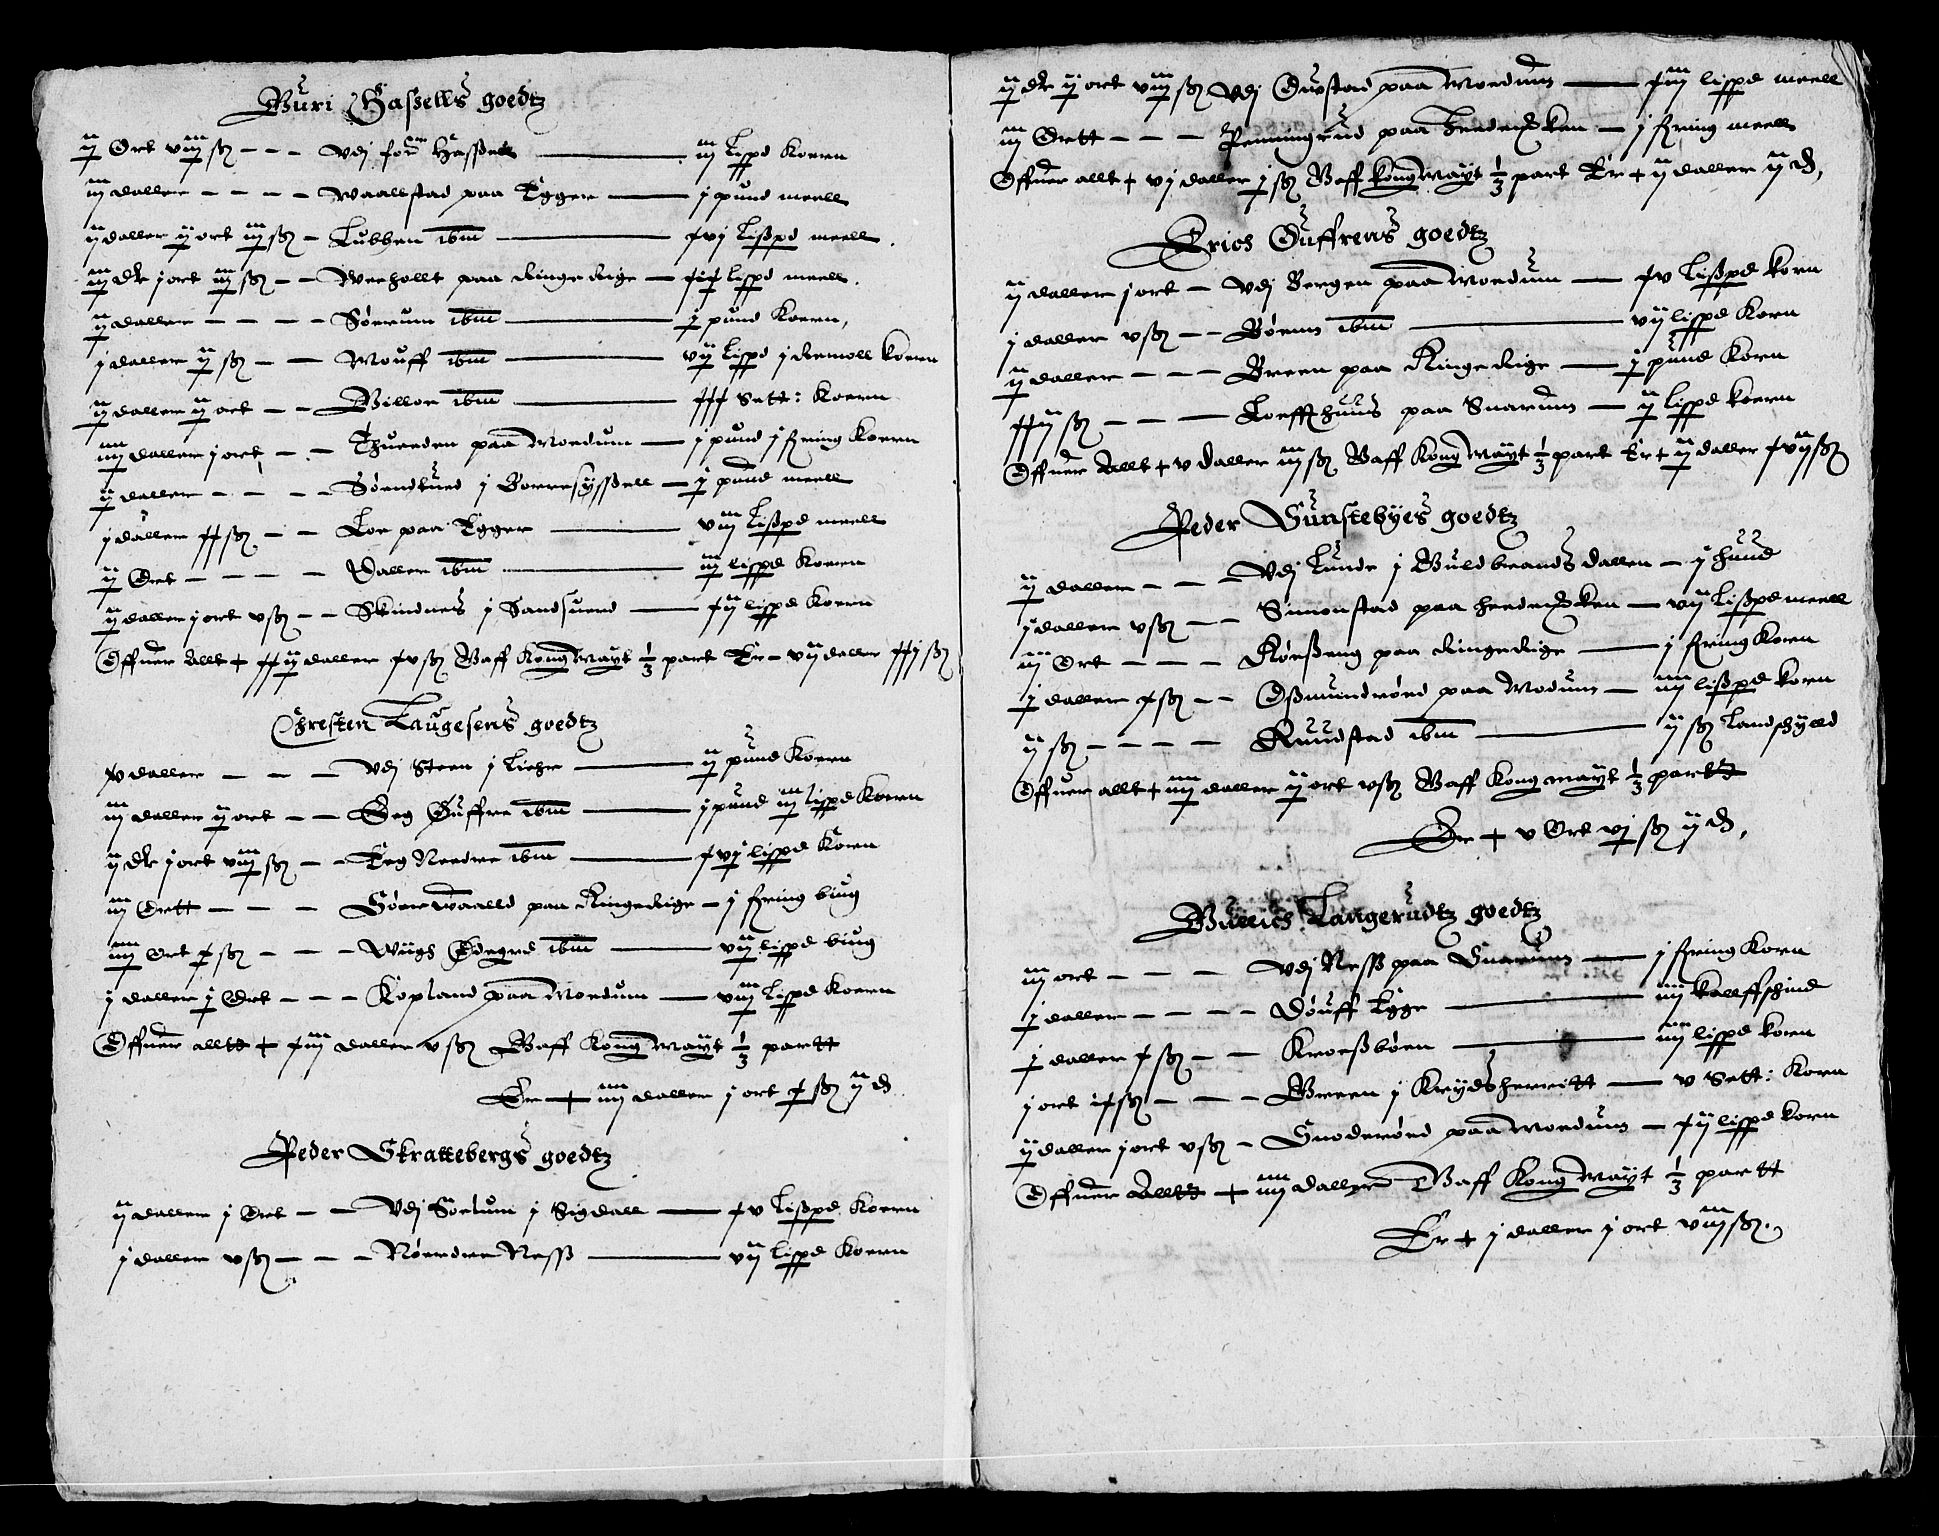 Guri Haßells goedtz
ij Ort viij sß --- Vdj for: Haßell — iij Lispd Koern
iij daller ---- Waallstad paa Egger — j pund meell
ij daller ij ort iiij sß - Lubben ibm — xvj Lißpd meell
iij dlr j ort iiij sß -- Weehollt paa Ringerige — xix lispd meell
ij daller ---- Sørum ibm — j pund Koern
j daller ij sß -- Mouff ibm — vij Lispd j Koern
ij daller ij ort -- Willor ibm — Sett: Koern
iiij daller j ort -- Thuerden paa Moedum — j pund j fring Koern
ij daller ---- Sønderued j Borresyßell — j pund meell
j daller xx sß -- Loe paa Egger — viij Lißpd meell
ij Ort ---- Daller ibm — iiij lispd Koern
ij daller j ort v sß -- Skindnes j Sandsuerd — xij lispd Koern
Offuer Allt + xxij daller xv sß Haff Kong Mayt 1/3 part Er - vij daller xxj sß
Chresten Laugesens goedtz
xv daller --- Vdj Steen j Liehr — ij pund Koern
iij daller ij ort -- Eeg Øuffre ibm — j pund iiij lispd Koern
ij dlr j ort viij sß -- Eeg Nerdre ibm — xvj lispd Korn
iij Ortt --- Sørewaalld paa Ringerige — j fring biug
iiij ort x sß --- Wiigs Ødegrd ibm — vij lispd biug
j daller j Ort --- Kopland paa Moedum — viij Lispd Koern
Offuer alltt + xiij daller v sß Haff Kong Mayt 1/3 partt
Er + iiij daller j ort x sß ij d
Peder Skrattebergs goedtz
ij daller j Ort -- Vdj Sørum j Sigdall — xv Lißpd Koern
j daller v sß --- Nørdre Neß — vij lispd Koern
ij dlr ij ort viij sß Vdj Gustad paa Moedum — xiij lispd meell
iij Ortt --- Penningrud paa — j fring meell
Offuer allt + vj daller j sß Haff Kong Mayt 1/3 part Er + ij daller ij d,
Erics Øuffrens goedtz
ij daller j ort - Vdj Bergen paa Moedum — xv Lißpd korn
j daller v sß -- Børnn ibm — vij lispd Korn
ij daller --- Breen paa Ringerige — j pund Korn
xxij sß --- Loeffthuus paa Snarum — ij lispd koern
Offuer Allt + v daller iiij sß Haff Kong Mayt 1/3 part Er + ij daller xvij sß
Peder Gunstebyes goedtz
ij daller --- Vdj Lunde j Guldbrands dallen — j huud
j daller v sß -- Simonstad paa — vij Lißpd meell
iij Ort --- Kørßeng paa Ringerige — j fring Korn
j daller x sß -- Oßmundrød paa Modum — iiij lißpd korn
ij sß ---- Ruudstad ibm — ij sß Landschylld
Offuer allt + iiij daller ij ort v sß Haff Kong Mayt 1/3 partt
Er + v Ort vj sß ij d,
Gullics Langerudtz goedtz
iij ort --- Vdj Neß paa Snarum — j fring Korn
j daller ---- Døuff Egge — iiij kallffschind
j daller x sß -- Kroeßbøen — iiij lispd korn
j ort ix sß --- Green j Krydsherritt — v Sett: Korn
ij daller j ort v sß - Gnoderød paa Moedum — xij lispd korn
Offuer Alltt + iiij daller Haff Kong Mayt 1/3 partt
Er + j daller j ort viij sß.